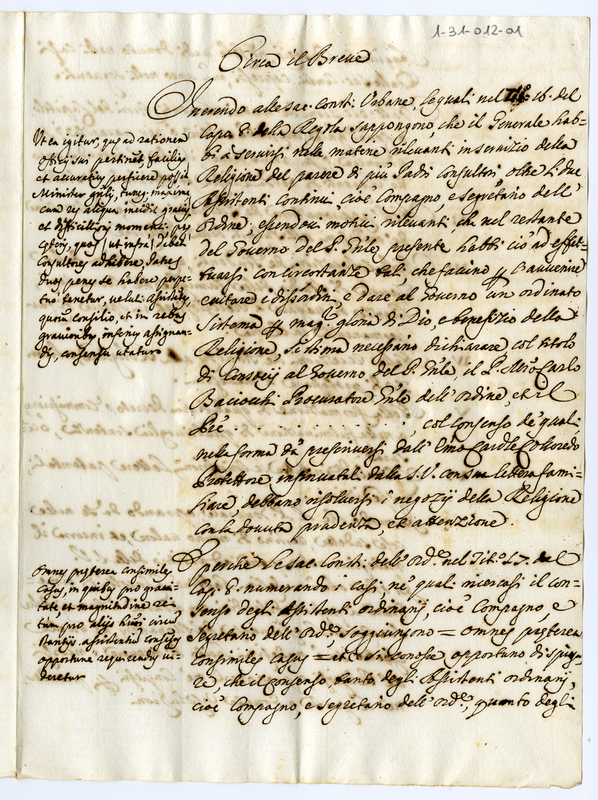 1-31-012-01
Circa il Breve
Inerendo alle sac. Const: Urbane, le quali nel Tit: 16. del
Cap. 8. della Regola suppongono, che il Generale hab-
bi a servirsi nelle materie rilevanti in servizio della
Religione del parere di più Padri Consultori oltre li due
Assistenti continui cioè Compagno, e Segretario dell'
Ordine, essendovi motivi rilevanti che nel restante
del Governo del P. Gnle presente habbi ciò ad effet-
tuarsi con circostanze tali, che faccino p l'avvenire
evitare i disordini, e dare al Governo un ordinato
sistema p mag: gloria di Dio, e benefizio della
Religione, si stima necessario dichiarare col titolo
di al Governo del P. Gnle, il P. Mro Carlo
Baciocchi Procuratore Gnle dell'Ordine, et il
Pre . . . . . . . . . . . . , col consenso de quali
nella forma da prescriversi dall' Emo Cardle Colloredo
Protettore dalla S.V. con sua lettera fami-
liare, debbano risolversi i negozij della Religione
con la dovuta prudenza, et attenzione.
E perche le sac. Consti: dell'Ord: nel Tit: 17. del
Cap. 8. numerando i casi, ne' quali ricercasi il con-
senso degli Assistenti ordinarij, cioè Compagno, e
Segretario dell'Ord:, soggiungono = omnes pręterea
consimiles casus = etc. si conosce opportuno di spiega-
re, che il consenso tanto degli Assistenti ordinarij,
cioè Compagno, e Segretario dell'Ord:, quanto degli
Ut ea igitur, quę ad rationem
officij sui pertinent facilius
et accuratius perficere possit
Minister gnlis, tunc maxime
cum res aliqua inciderit gravis
et difficilioris momenti, pręter
cęteros, quos (ut infra) debet
Consultores adhibere, Patres
duos penes se habere perpe-
tuo tenetur, velut Assistentes,
quorum consilio, et in rebus
gravioribus inferius assignan-
dis, consensu utatur
Omnes pręterea consimiles
casus, in quibus pro gravi-
tate et magnitudine re-
rum pro alijs huiusmodi circum-
stantijs assistentium consensus
opportune requirendus vi-
deretur